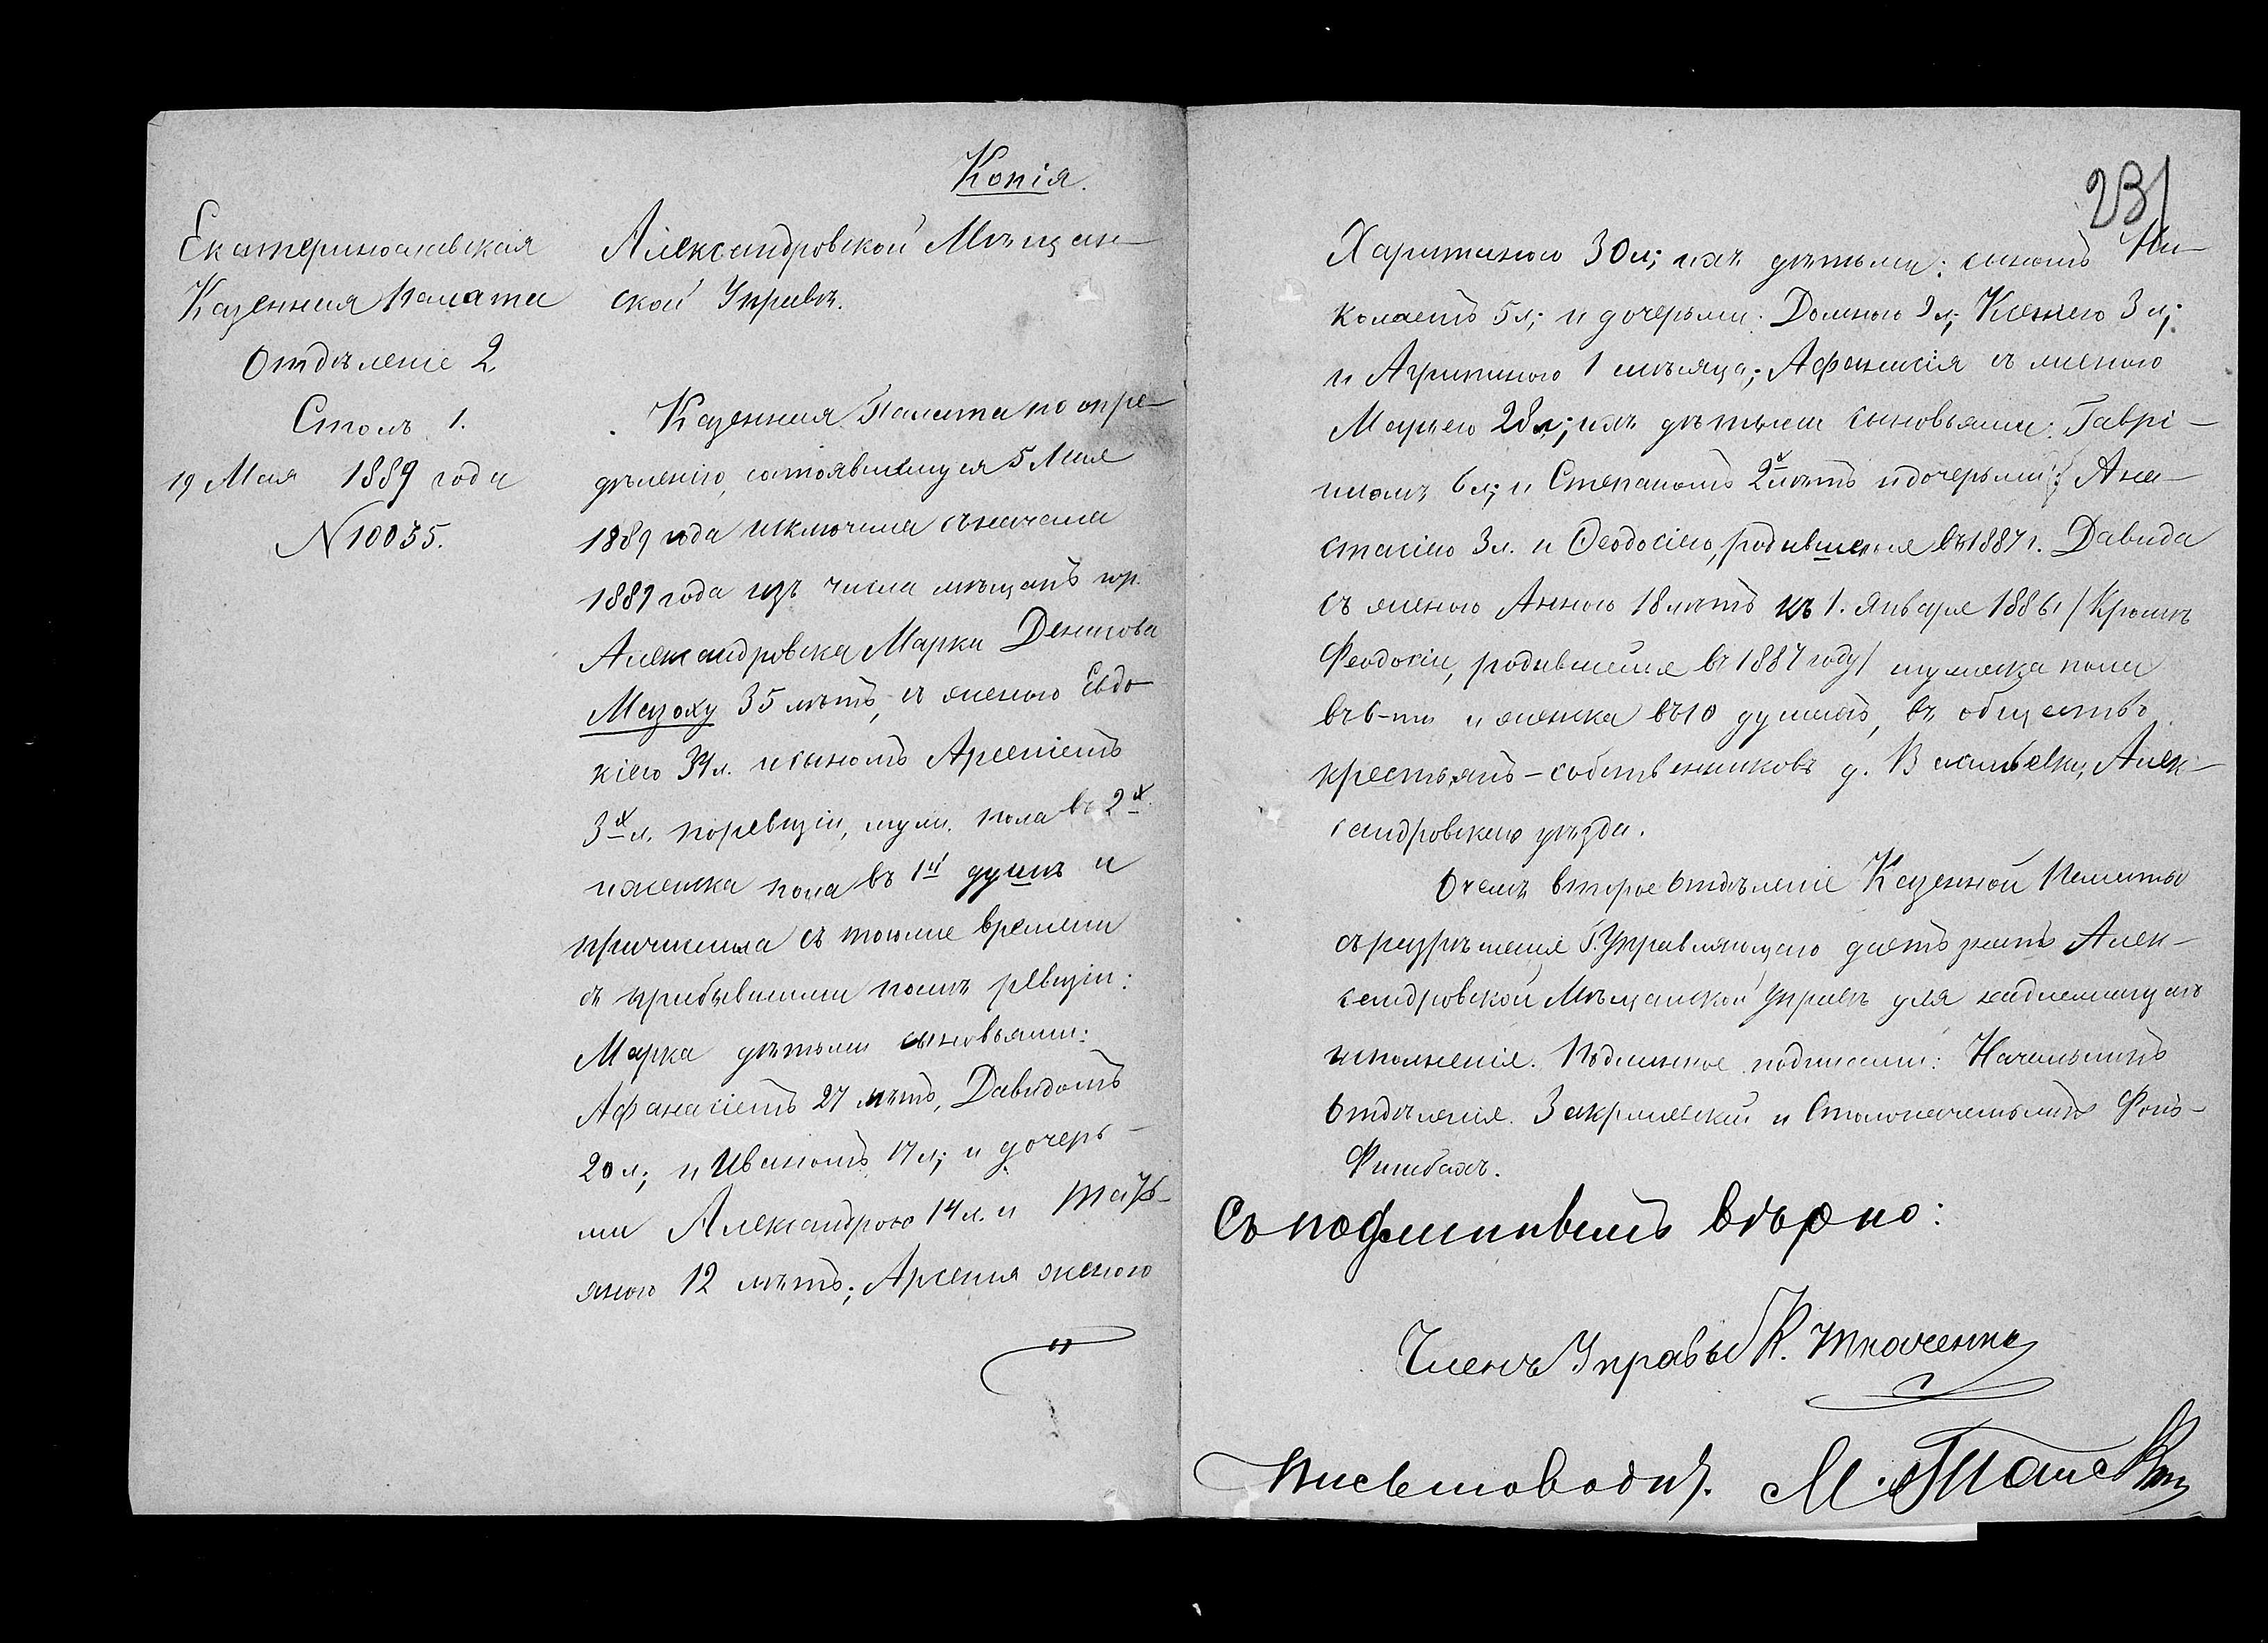 Копія.
Екатеринославская
Казенная Палата
Отдѣленіе 2
Столъ 1.
19 Мая 1889 года
№ 10035.
Александровской Мѣщан-
ской Управѣ.
Казенная Палата по опре-
дѣленію, состоявшемуся 5 Мая
1889 года исключила съ начала
1889 года изъ числа мѣщанъ гор.
Александровска Марка Денисова
Мазоху 35 лѣтъ, съ женою Евдо-
кіею 34 л. и сыномъ Арсеніемъ
3х л. по ревизіи, муж. пола въ 2х
и женска пола въ 1й душѣ и
причислила съ того же времени
съ прибывшими послѣ ревизіи:
Марка дѣтьми сыновьями:
Афанасіемъ 27 лѣтъ, Давидомъ
20 л; и Иваномъ 17 л; и дочерь-
ми Александрою 14 л. и Тать-
яною 12 лѣтъ; Арсенія женою
231
Харитиною 30 л; ихъ дѣтьми: сыномъ Ни-
колаемъ 5 л; и дочерьми: Домною 9 л; Ксеніею 3 л;
и Агрипиною 1 мѣсяца; Афанасія съ женою
Маріею 28 л; ихъ дѣтьми сыновьями: Гаврі-
иломъ 6 л; и Степаномъ 2х лѣтъ и дочерьми: Ана-
стасіею 3 л. и Ѳеодосіею, родившеюся въ 1887 г. Давида
съ женою Анною 18 лѣтъ къ 1. Января 1886 г. /Кромѣ
Феодосіи, родившейся въ 1887 году/ мужеска пола
въ 6-ти и женска въ 10 душахъ, въ общество
крестьянъ-собственниковъ д. Васильевки, Алек-
сандровскаго уѣзда.
О чемъ второе Отдѣленіе Казенной Палаты
съ разрѣшенія Г. Управляющаго даетъ знать Алек-
сандровской Мѣщанской Управѣ для надлежащаго
исполненія. Подлинное подписали: Начальникъ
Отдѣленія Закржевскій и Столоначальникъ Фонъ-
Фишбахъ.
Съ подлиннымъ вѣрно:
Членъ Управы К. Ткаченко
Письмоводит.